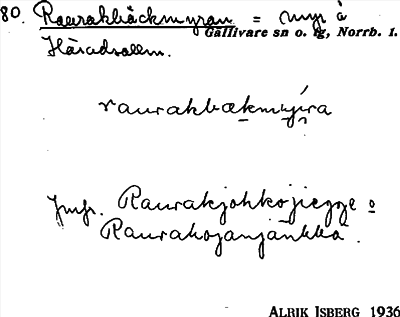 80. Raurakbäckmyran = myr å
Gällivare sn o. tg, Norrb. l.
Häradsallm.
raurakbækmyra
Jmfr. Raurakjohkojiegge o
Raurakojanjankka.
ALRIK ISBERG 1936